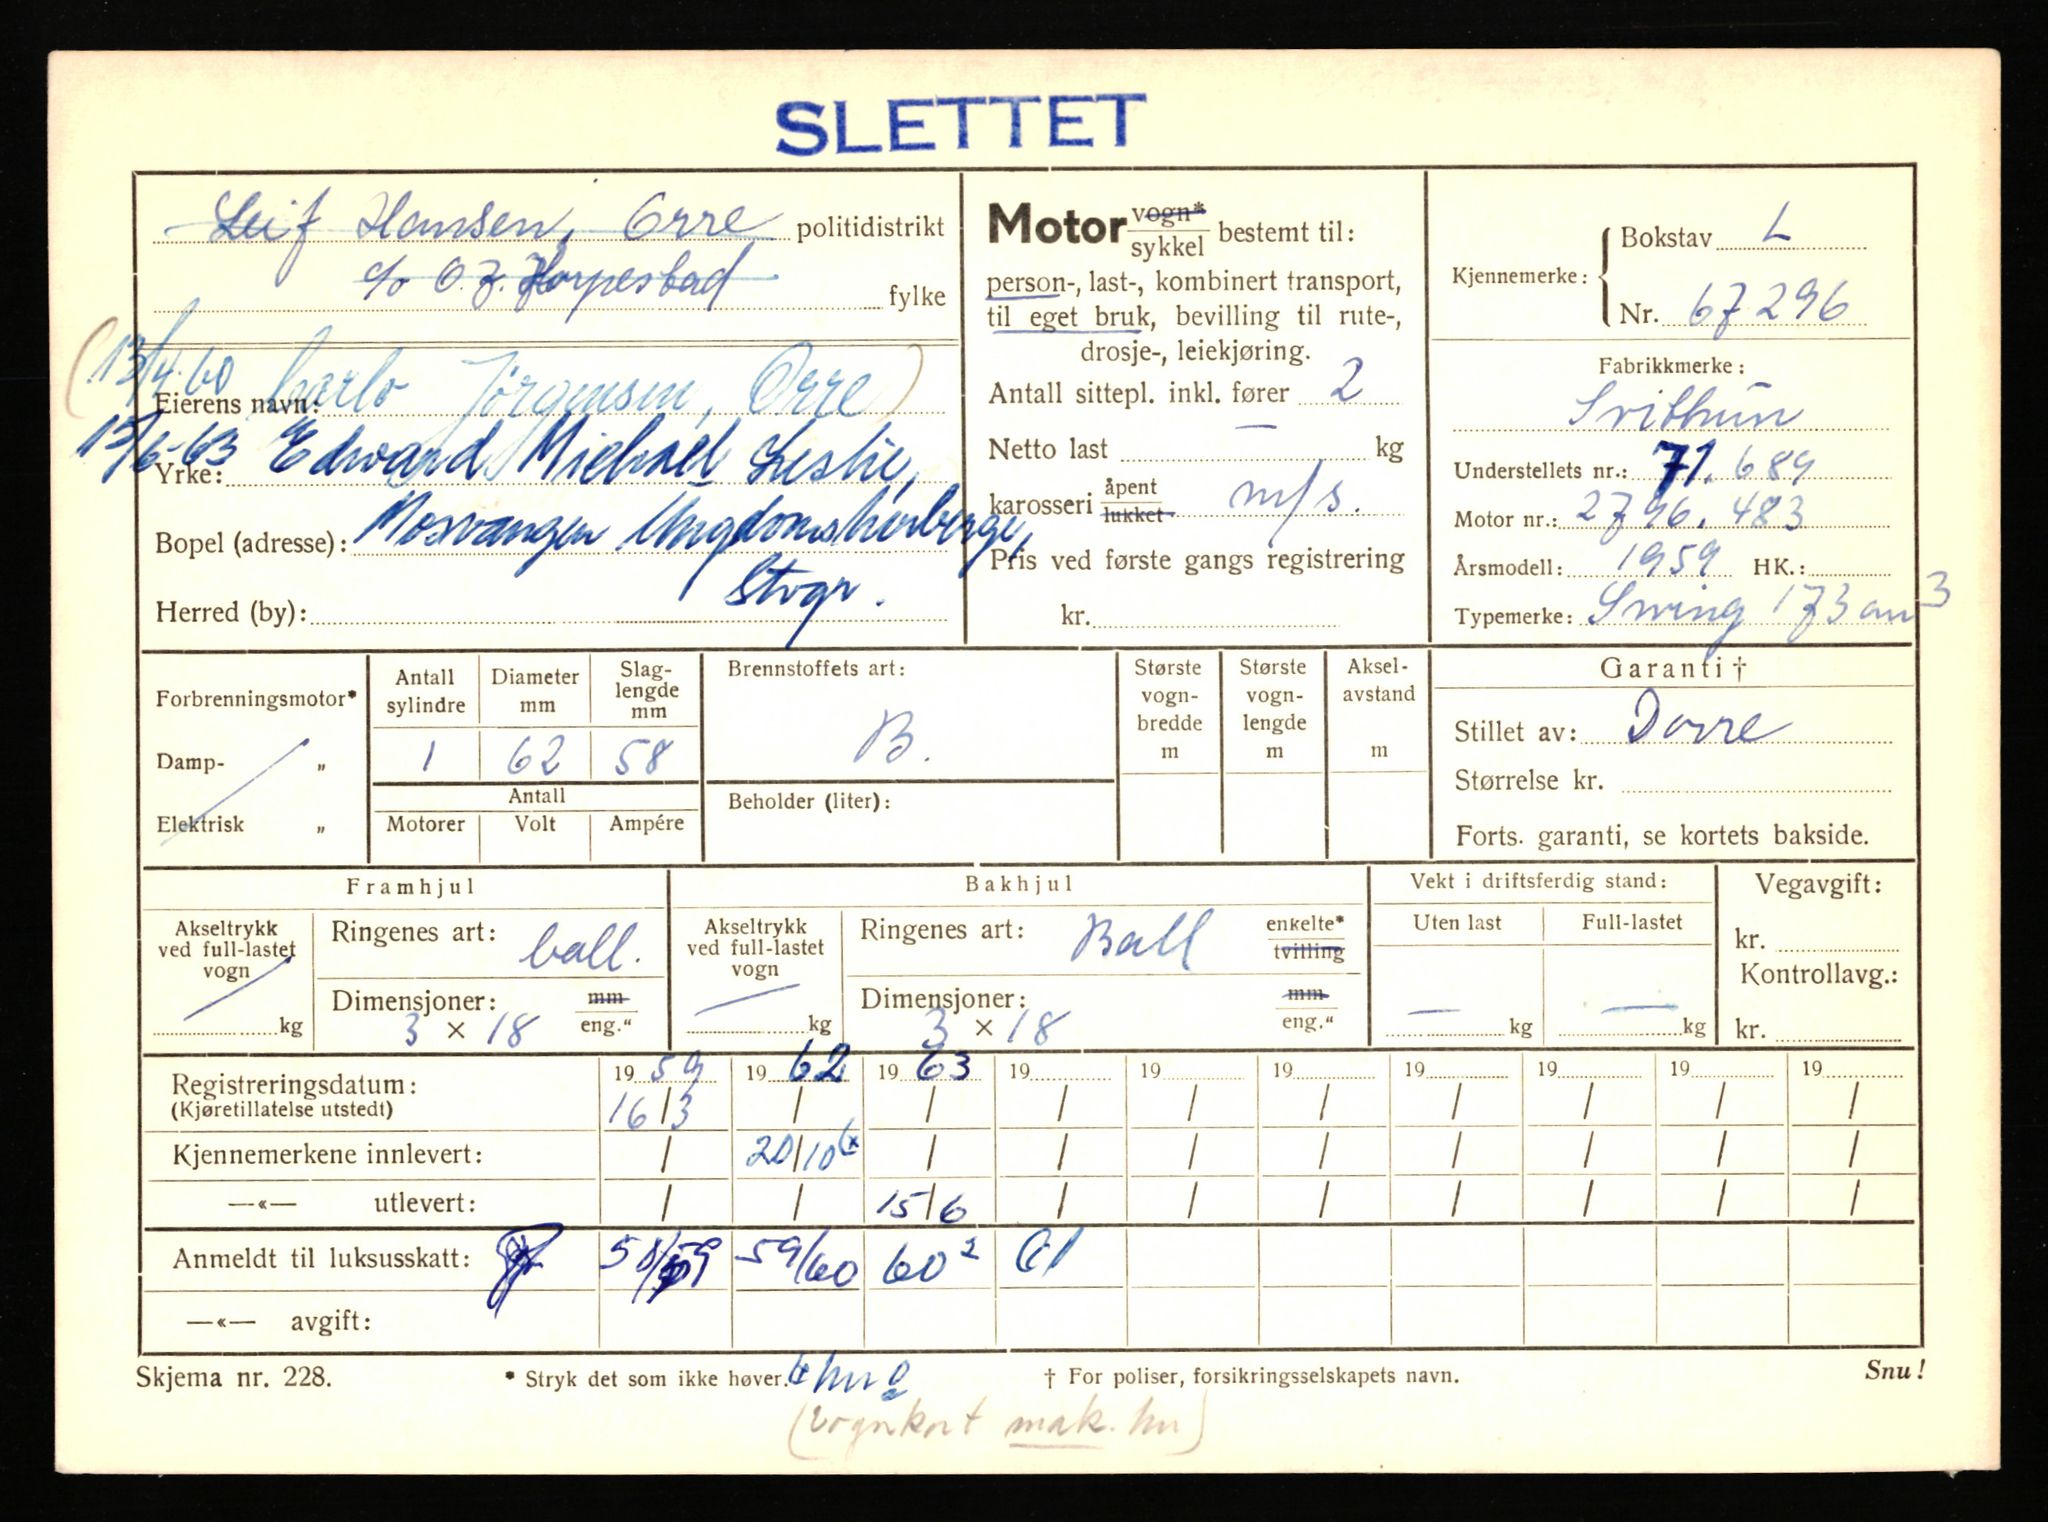 SLETTET
Leif Hansen, Orre politidistrikt
c/o O. J. Horpestad fylke
(13/4-60 Carlo Jørgensen, Orre)
Eierens navn:
15/6-63 Edward Michael Leslie,
Yrke:
Bopel (adresse): Mosvangen Ungdomsherberge,
Stvgr.
Herred (by):
Motor vogn* sykkel bestemt til:
person-, last-, kombinert transport,
til eget bruk, bevilling til rute-,
drosje-, leiekjøring.
Antall sittepl. inkl. fører 2
Netto last — kg
karosseri åpent lukket m/s.
Pris ved første gangs registrering
kr.
Kjennemerke: Bokstav L
Nr. 67296
Fabrikkmerke:
Svithun
Understellets nr.: 71.689
Motor nr.: 2796.483
Årsmodell: 1959 HK.:
Typemerke: Swing 173 cm3
Forbrenningsmotor*
Damp- „
Elektrisk „
Antall sylindre Diameter mm Slaglengde mm
1 62 58
Antall
Motorer Volt Ampére
Brennstoffets art:
B.
Beholder (liter):
Største vognbredde m
Største vognlengde m
Akselavstand m
Garanti †
Stillet av: Dovre
Størrelse kr.
Forts. garanti, se kortets bakside.
Framhjul
Akseltrykk ved full-lastet vogn kg
Ringenes art: ball.
Dimensjoner: mm
3 × 18 eng."
Bakhjul
Akseltrykk ved full-lastet vogn kg
Ringenes art: Ball enkelte* tvilling
Dimensjoner: mm
3 × 18 eng."
Vekt i driftsferdig stand:
Uten last Full-lastet
— kg — kg
Vegavgift:
kr.
Kontrollavg.:
kr.
Registreringsdatum: 19 59 19 62 19 63 19 19 19 19 19 19 19
(Kjøretillatelse utstedt) 16/3 / / / / / / / / /
Kjennemerkene innlevert: / 20/10 / / / / / / / /
—«— utlevert: / / 15/6 / / / / / / /
Anmeldt til luksusskatt: 58/59 59/60 60² 61
—«— avgift:
Skjema nr. 228. * Stryk det som ikke høver. † For poliser, forsikringsselskapets navn. Snu!
(vognkort mak. hm)